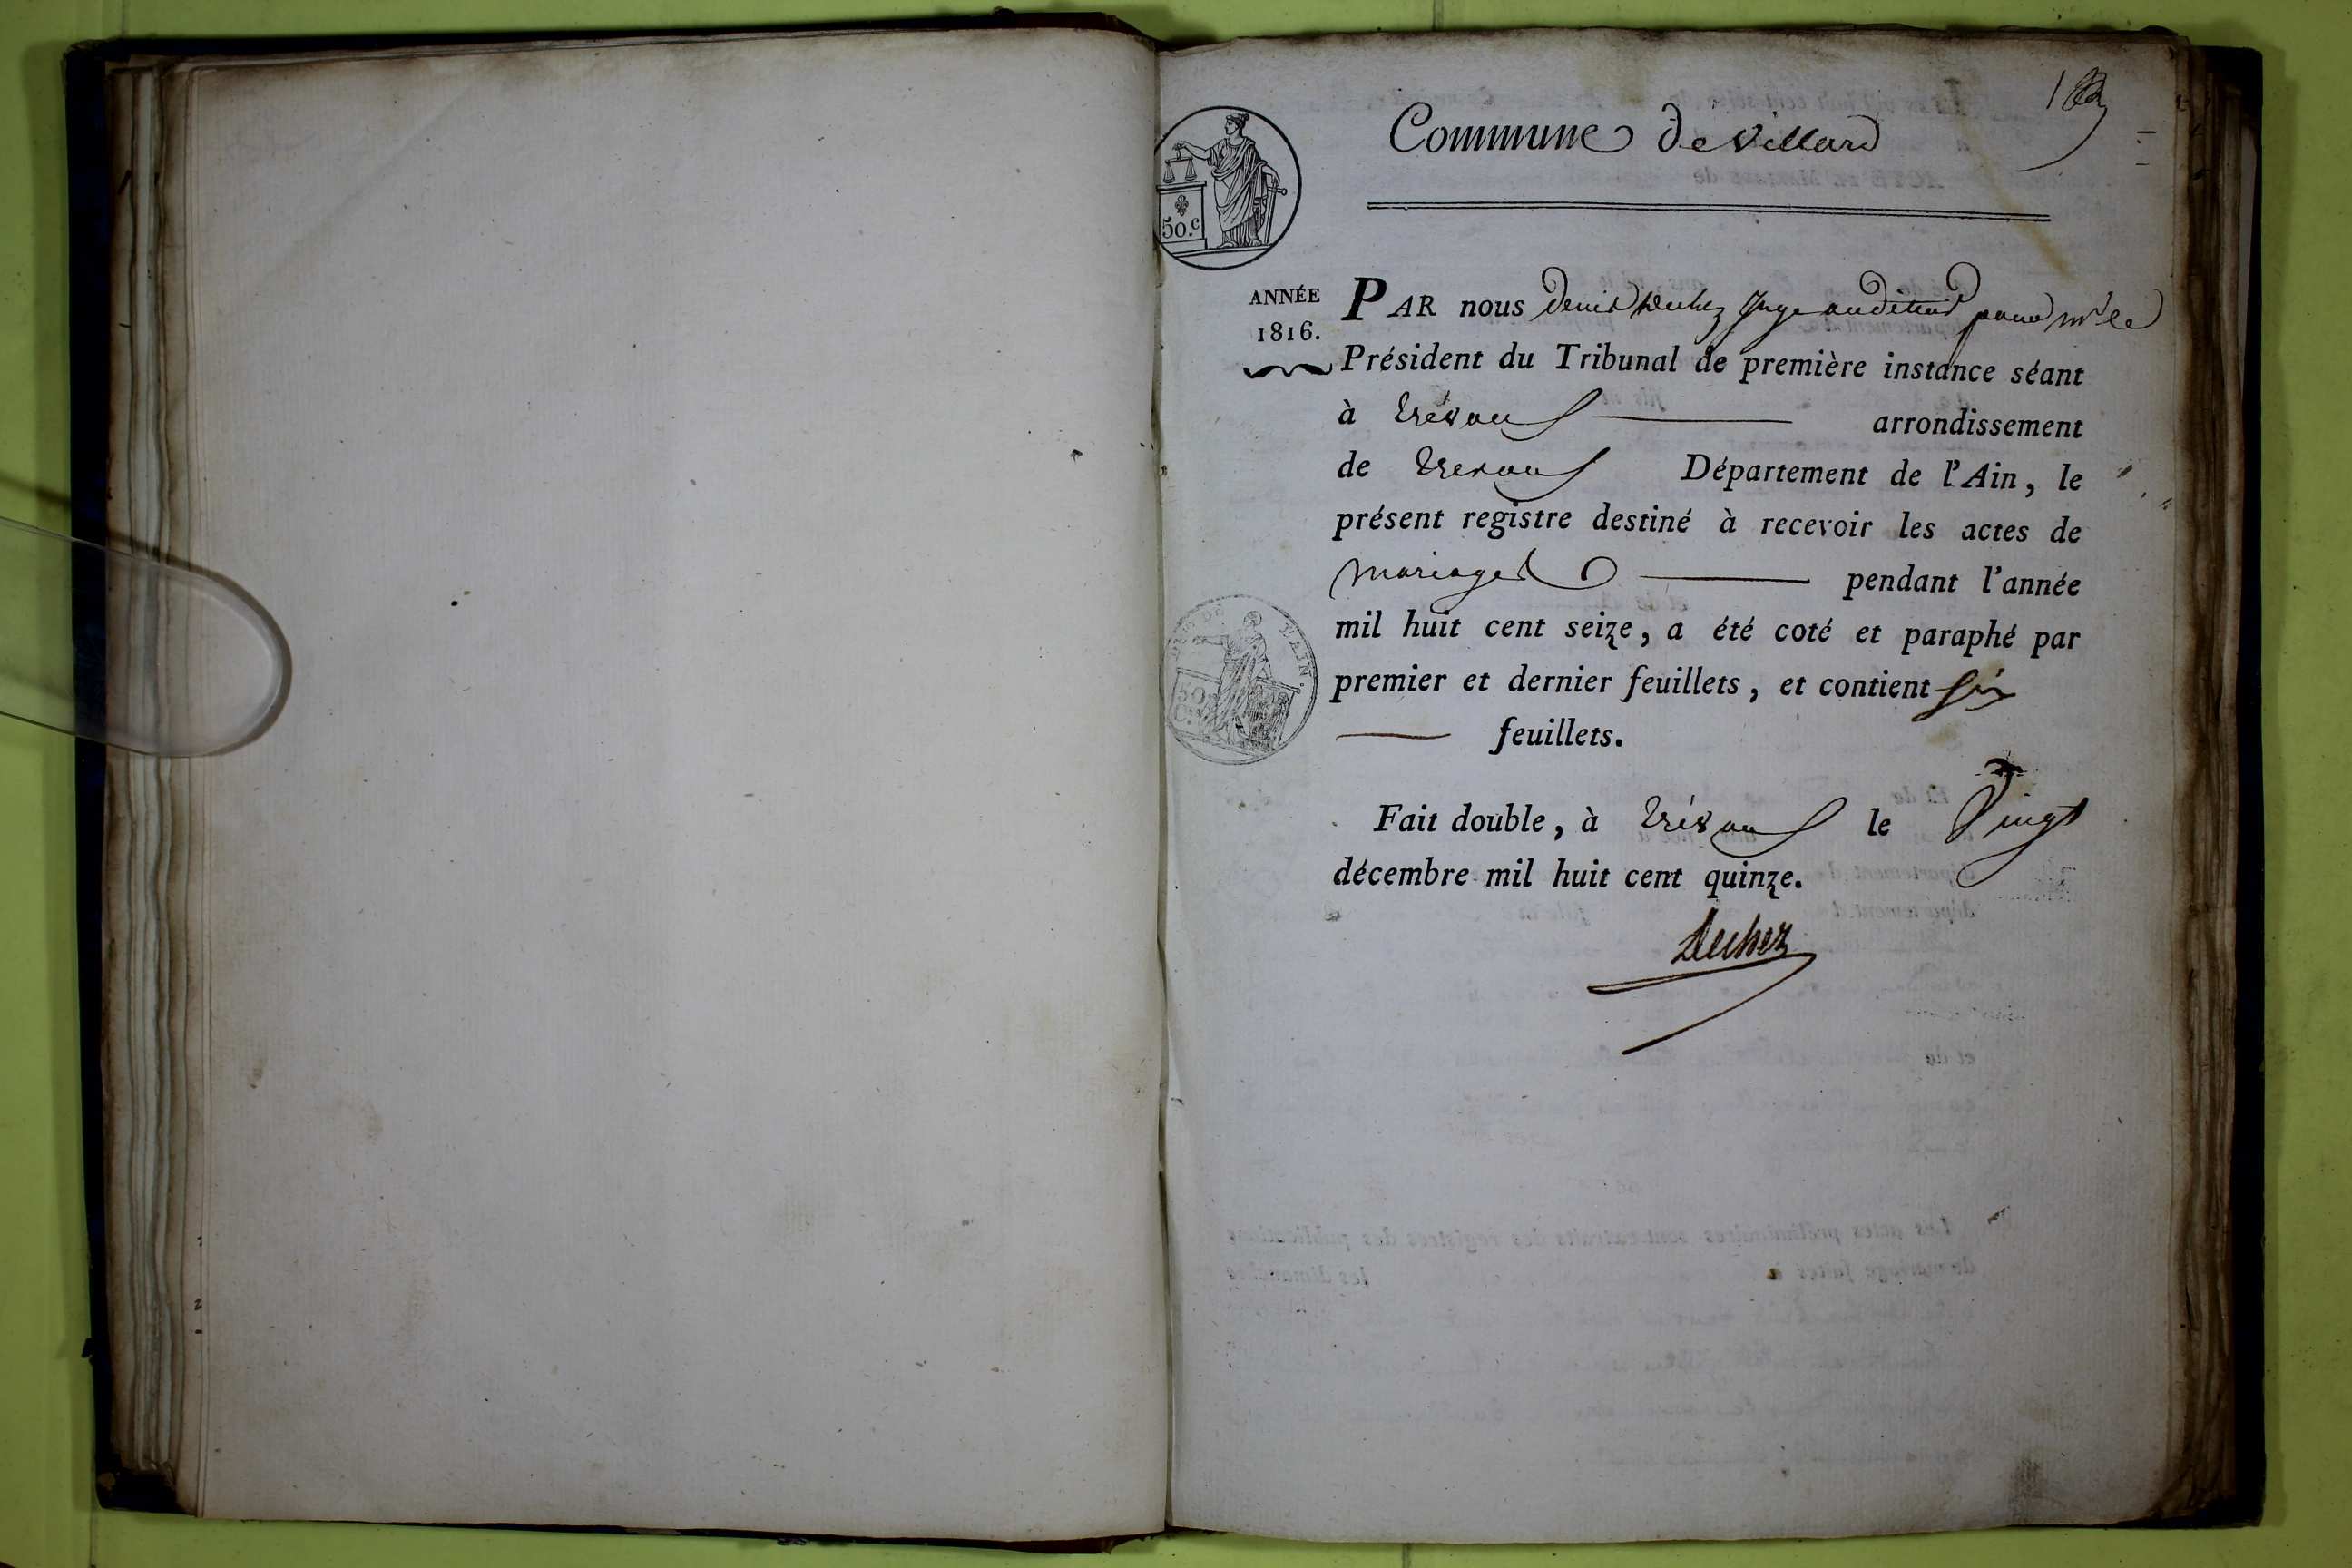 Commune de Villard
50.c
ANNÉE
1816.
PAR nous denis Dechez Juge auditeur pour mr le
Président du Tribunal de première instance séant
à trévoux arrondissement
de trevoux Département de l'Ain, le
présent registre destiné à recevoir les actes de
mariages pendant l'année
mil huit cent seize, a été coté et paraphé par
premier et dernier feuillets, et contient six
feuillets.
AIN.
50
C.
Fait double, à trévoux le Vingt
décembre mil huit cent quinze.
Dechez